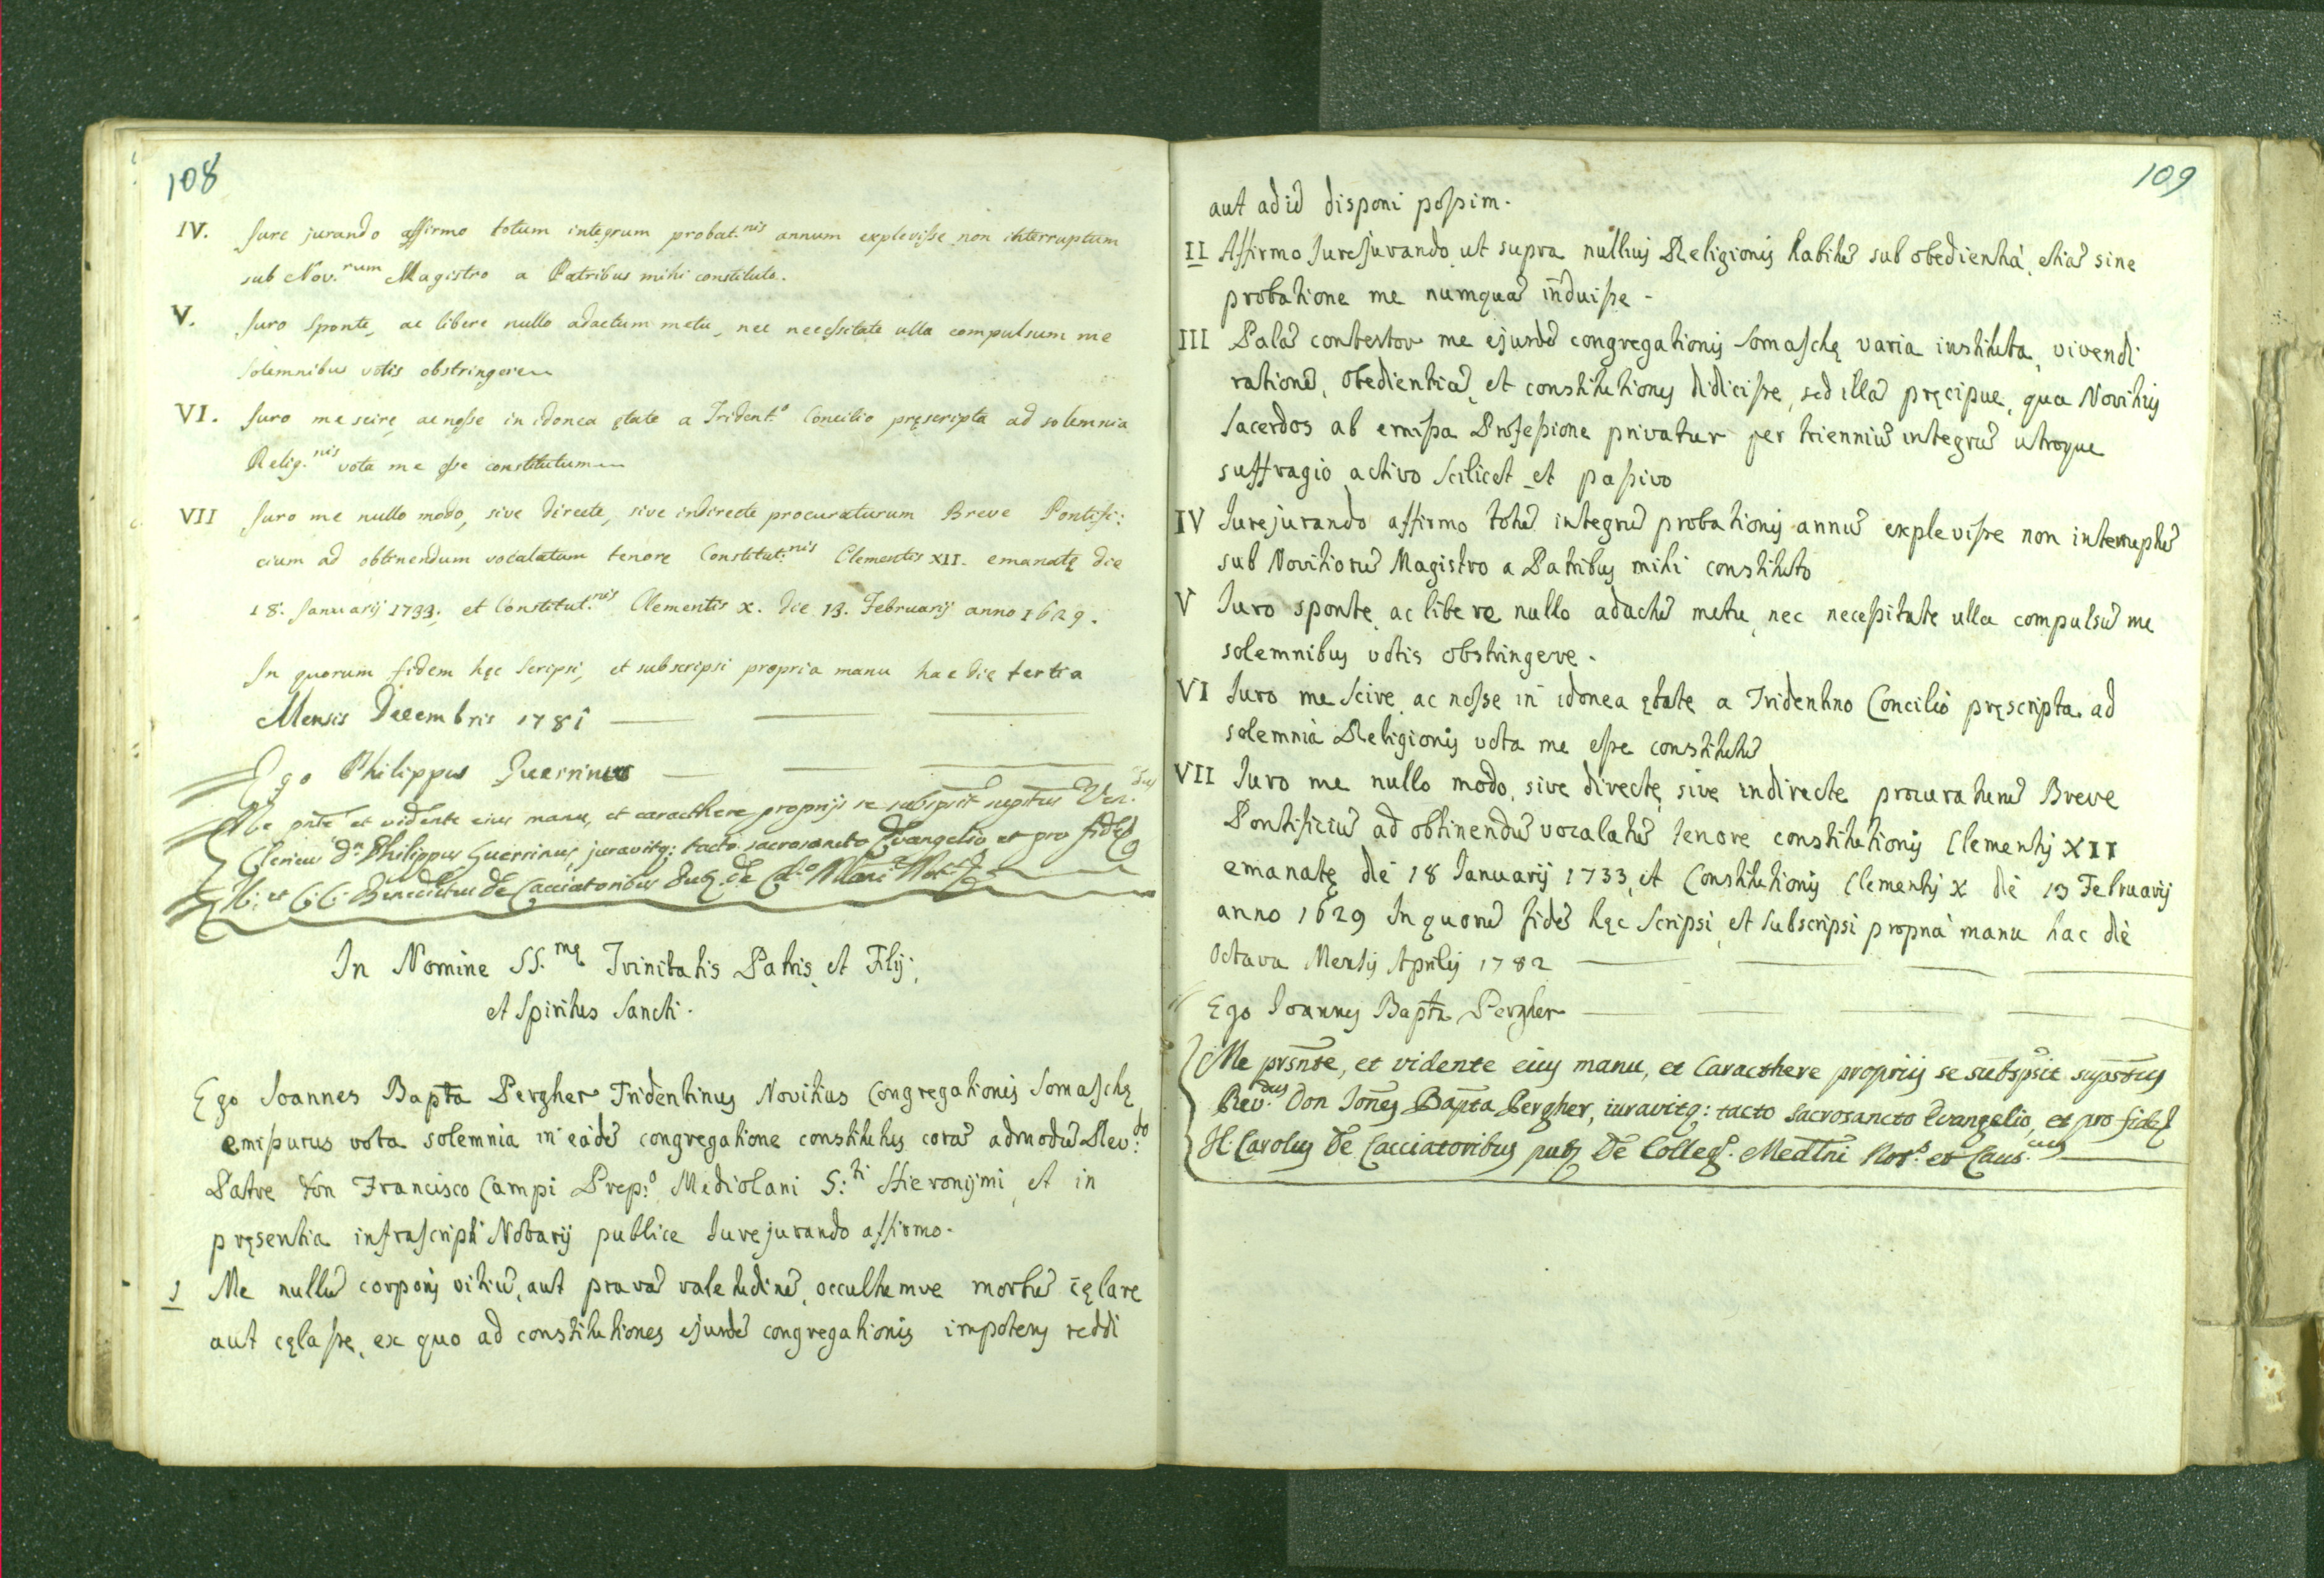 108
IV. Jure jurando affirmo totum integrum probat.nis annum explevisse non interruptum
sub Nov.rum Magistro a Patribus mihi constituto.
V. Juro sponte, ac libere nullo adactum metu, nec necessitate ulla compulsum me
solemnibus votis obstringere
VI. Juro me scire, ac nosse in idonea ętate a Trident.o Concilio pręscripta ad solemnia
Relig.nis vota me esse constitutum
VII Juro me nullo modo, sive directe, sive indirecte procuraturum Breve Pontifi:
cium ad obtinendum vocalatum tenore Constitut.nis Clementis XII. emanatę die
18. Januarij 1733. et Constitut.nis Clementis X. die 13. Februarij anno 1629.
In quorum fidem hęc scripsi, et subscripsi propria manu hac die tertia
Mensis Decembris 1781
Ego Philippus Guerrinus
Me pnte et vidente eius manu, et caracthere proprijs se subspsit supstus Ven.dus
Clericus Dn Philippus Guerrinus, juravitq: tacto sacrosancto Evangelio et pro fide
Benedictus de Cacciatoribus
In Nomine SS.mę Trinitatis Patris, et Filij,
et Spiritus Sancti.
Ego Joannes Bapta Pergher Tridentinus Novitius Congregationis Somaschę
emissurus vota solemnia in eadē congregatione constitutus corā admodū Rev:do
Patre Don Francisco Campi Prep:o Mediolani S:ti Hieronijmi, et in
pręsentia infrascripti Notarij publice Jurejurando affirmo.
1 Me nullū corporis vitiū, aut pravā valetudinē, occultumve morbū cęlare
aut cęlasse, ex quo ad constitutiones ejusdē congregationis impotens reddi
109
aut ad id disponi possim.
II Affirmo Jurejurando ut supra nullius Religionis habitū sub obedientia, etiā sine
probatione me numquā induisse.
III Palā contestor me ejusdē congregationis Somaschę varia instituta, vivendi
rationē, obedientiā, et constitutiones didicisse, sed illā pręcipue, qua Novitius
Sacerdos ab emissa Professione privatur per trienniū integrū utroque
suffragio activo scilicet et passivo
IV Jurejurando affirmo totū integrū probationis annū explevisse non interruptū
sub Novitiorū Magistro a Patribus mihi constituto
V Juro sponte, ac libere nullo adactū metu, nec necessitate ulla compulsū me
solemnibus votis obstringere.
VI Juro me scire, ac nosse in idonea ętate a Tridentino Concilio pręscripta ad
solemnia Religionis vota me esse constitutū
VII Juro me nullo modo, sive directe, sive indirecte procuraturū Breve
Pontificiū ad obtinendū vocalatū tenore constitutionis Clementis XII
emanatę die 18 Januarij 1733, et Constitutionis Clementis X die 13 Februarij
anno 1629 In quorū fidē hęc scripsi, et subscripsi propria manu hac die
Octava Mensis Aprilis 1782
Ego Joannes Bapta Pergher
Me prsnte, et vidente eius manu, et Caracthere propriis se subspsit supstus
Rev.dus Don Jones Bapta Pergher, iuravitq: tacto Sacrosancto Evangelio, et pro fide
J: Carolus De Cacciatoribus pub De Colleg.o Medlni Not.s et Caus.cus